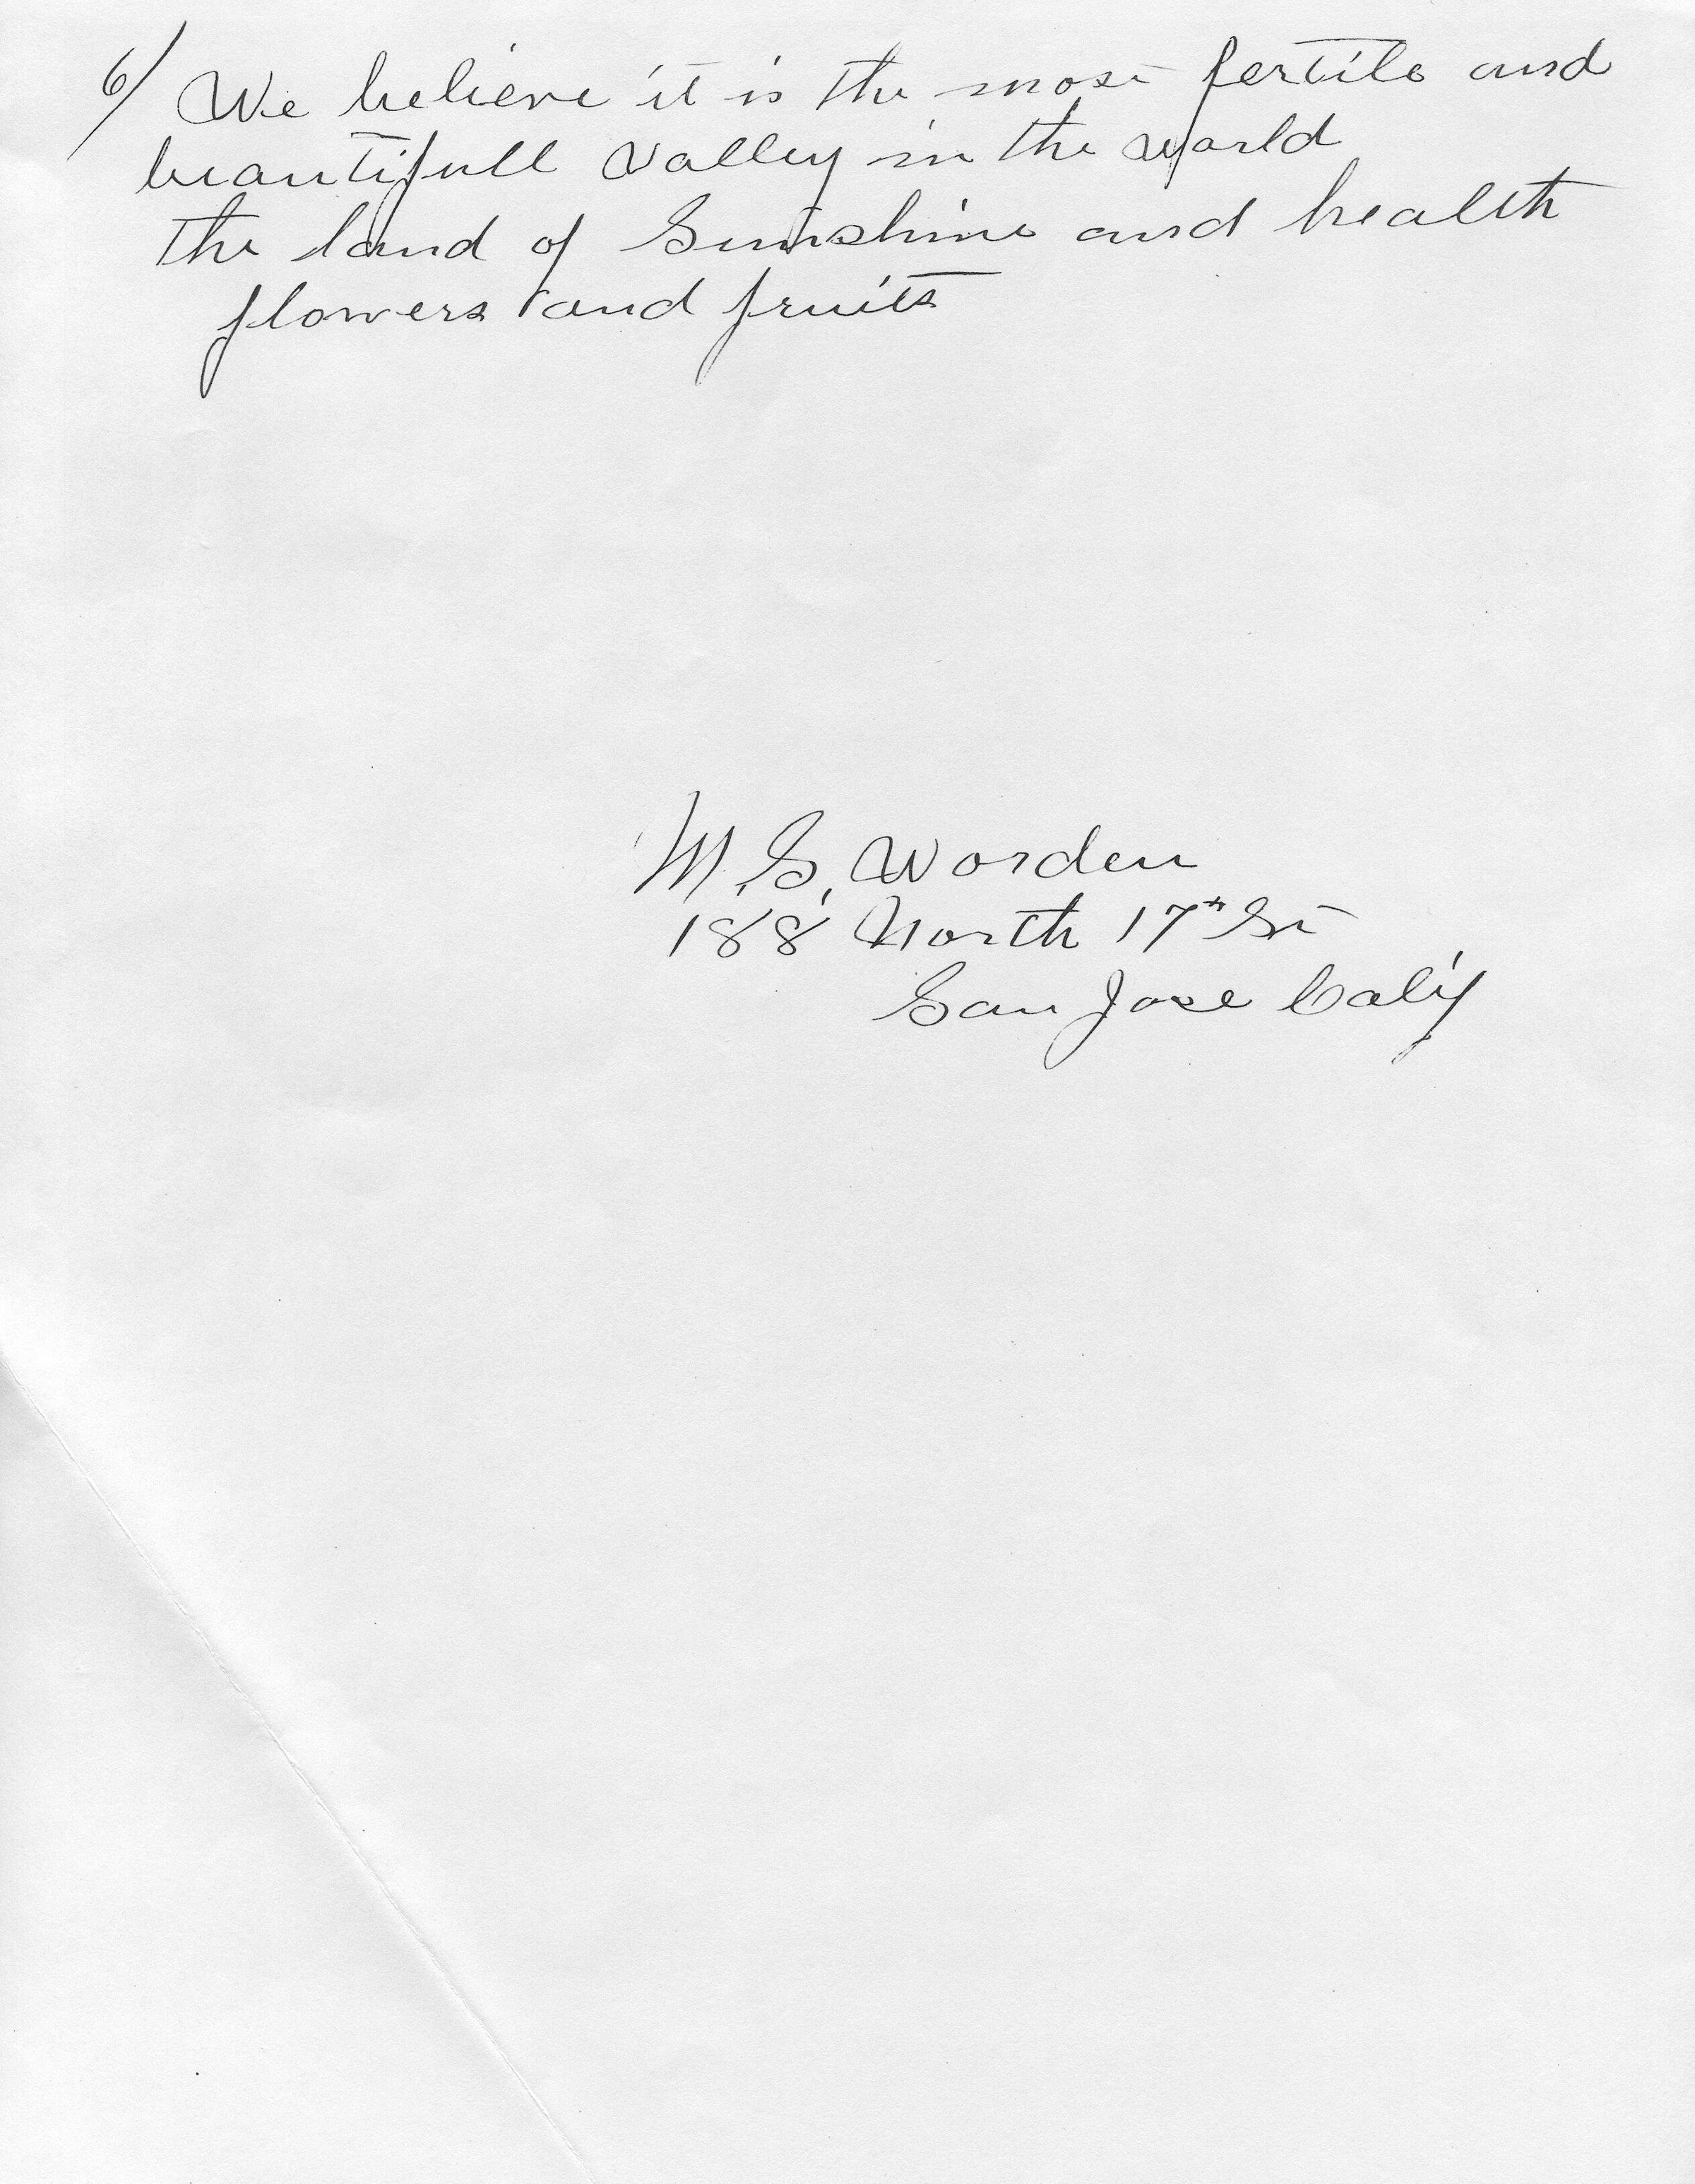 6/ We believe it is the most fertile and
beautifull valley in the world
the land of Sunshine and health
flowers and fruits
M. S. Worden
188 North 17th St
San Jose Calif